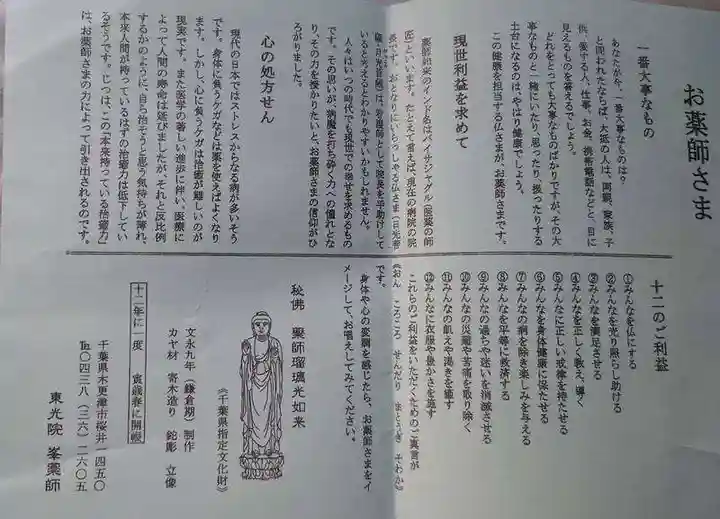 お薬師さま
一番大事なもの
あなたが今、一番大事なものは？
と問われたならば、大抵の人は、両親、家族、子
供、愛する人、仕事、お金、携帯電話などと、目に
見えるものを答えるでしょう。
どれをとっても大事なものばかりですが、その大
事なものと一緒にいたり、思ったり、扱ったりする
土台になるのは、やはり健康でしょう。
この健康を担当する仏さまが、お薬師さまです。
現世利益を求めて
薬師如来のインド名はバイサジャグル（医薬の師
匠）といいます。たとえて言えば、現在の病院の院
長です。おとなりにいらっしゃる仏さま（日光菩
薩・月光菩薩）は、看護師として院長を手助けして
いると考えるとわかりやすいかもしれません。
人々はいつの時代でも現世での幸せを求めるもの
です。その思いが、病魔を打ち砕く力への憧れとな
り、その力を授かりたいと、お薬師さまの信仰がひ
ろがりました。
心の処方せん
現代の日本ではストレスからなる病が多いそう
です。身体に負うケガなどは薬を使えばよくなり
ます。しかし、心に負うケガは治癒が難しいのが
現実です。また医学の著しい進歩に伴い、医療に
よって人間の寿命は延びましたが、それと反比例
するかのように、自ら治そうと思う気持ちが薄れ、
本来人間が持っているはずの治癒力は低下してい
るそうです。じつは、この「本来持っている治癒力」
は、お薬師さまの力によって引き出されるのです。
十二のご利益
①みんなを仏にする
②みんなを光り照らし助ける
③みんなを満足させる
④みんなを正しく教え、導く
⑤みんなに正しい戒律を持たせる
⑥みんなを身体健康に保たせる
⑦みんなの病を除き楽しみを与える
⑧みんなを平等に救済する
⑨みんなの過ちや迷いを消滅させる
⑩みんなの災難や苦痛を取り除く
⑪みんなの飢えや渇きを癒す
⑫みんなに衣服や豊かさを施す
これらのご利益をいただくためのご真言が
《おん　ころころ　せんだり　まとうぎ　そわか》
です。
身体や心の変調を感じたら、お薬師さまをイ
メージして、お唱えしてみてください。
秘佛　薬師瑠璃光如来
《千葉県指定文化財》
文永九年（鎌倉期）制作
カヤ材　寄木造り　鉈彫　立像
十二年に一度　寅歳春に開帳
千葉県木更津市桜井一四五〇
℡〇四三八（三六）二六〇五
東光院　峯薬師